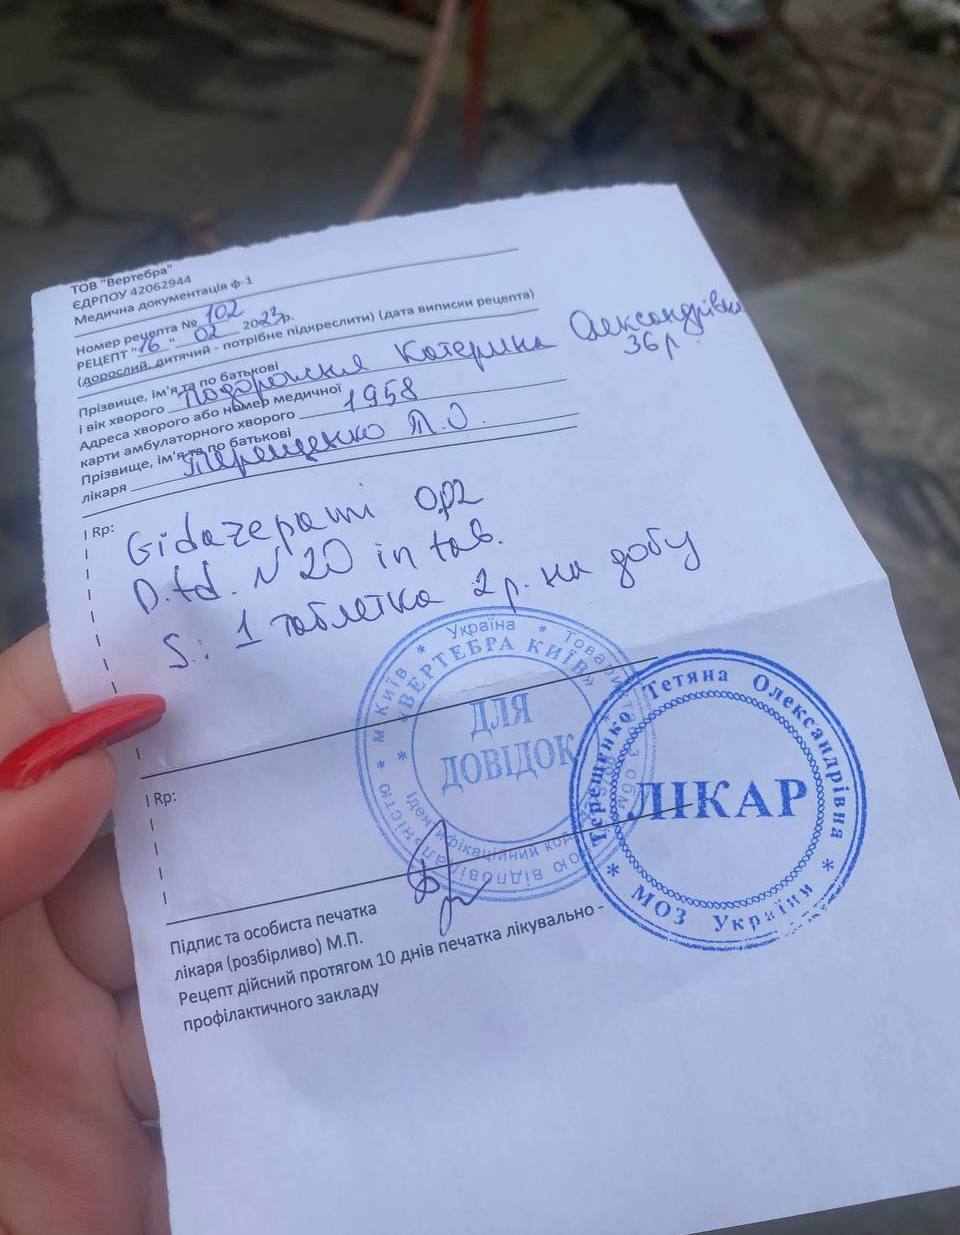 ТОВ "Вертебра"
ЄДРПОУ 42062944
Медична документація ф-1
Номер рецепта № 102
РЕЦЕПТ "16" 02 2023р.
(дорослий, дитячий - потрібне підкреслити) (дата виписки рецепта)
Прізвище, ім'я та по батькові
і вік хворого Подорожня Катерина Олександрівна
36р.
Адреса хворого або номер медичної
карти амбулаторного хворого 1958
Прізвище, ім'я та по батькові
лікаря Терещенко Т.О.
Rp:
Gidazepami 0,02
D.td. N 20 in tab.
S.: 1 таблетка 2 р. на добу
Україна * Товариство з обмеженою відповідальністю * м.Київ *
«ВЕРТЕБРА КИЇВ»
Ідентифікаційний код
ДЛЯ
ДОВІДОК
Терещенко Тетяна Олександрівна
ЛІКАР
* МОЗ України *
Rp:
Підпис та особиста печатка
лікаря (розбірливо) М.П.
Рецепт дійсний протягом 10 днів печатка лікувально -
профілактичного закладу